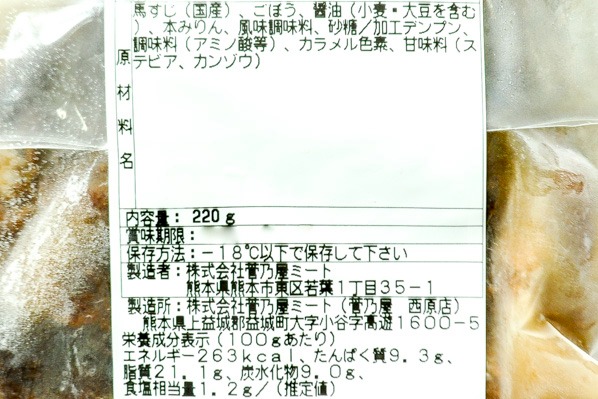 馬すじ（国産）、ごぼう、醤油（小麦・大豆を含む
）、本みりん、風味調味料、砂糖／加工デンプン、
調味料（アミノ酸等）、カラメル色素、甘味料（ス
テビア、カンゾウ）
原材料名
内容量：220g
賞味期限：
保存方法：－18℃以下で保存して下さい
製造者：株式会社菅乃屋ミート
熊本県熊本市東区若葉1丁目35－1
製造所：株式会社菅乃屋ミート（菅乃屋　西原店）
熊本県上益城郡益城町大字小谷字高遊1600－5
栄養成分表示（100gあたり）
エネルギー263kcal、たんぱく質9.3g、
脂質21.1g、炭水化物9.0g、
食塩相当量1.2g/（推定値）